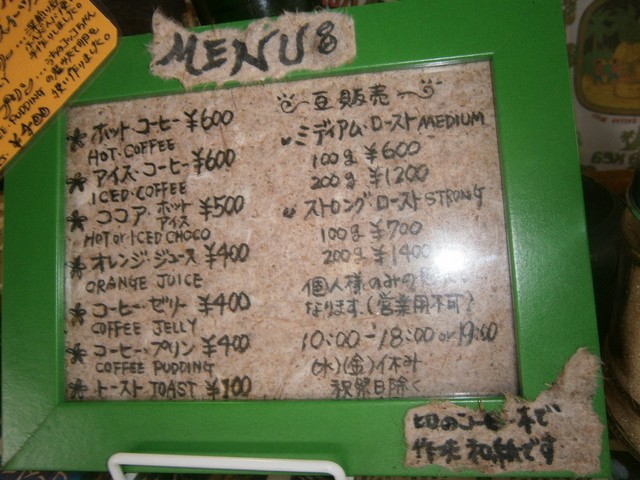 MENU
ホット・コーヒー ¥600
HOT・COFFEE
アイス・コーヒー ¥600
ICED・COFFEE
ココア・ホット ¥500
アイス
HOT or ICED CHOCO
オレンジジュース ¥400
ORANGE JUICE
コーヒー・ゼリー ¥400
COFFEE JELLY
コーヒー・プリン ¥400
COFFEE PUDDING
トースト TOAST ¥100
豆販売
ミディアム・ロースト MEDIUM
100g ¥600
200g ¥1200
ストロングロースト STRONG
100g ¥700
200g ¥1400
個人様のみの
なります。(営業用不可)
10:00-18:00 or 19:00
(水)(金)休み
祝祭日除く
印のコーヒー木で
作 和紙です